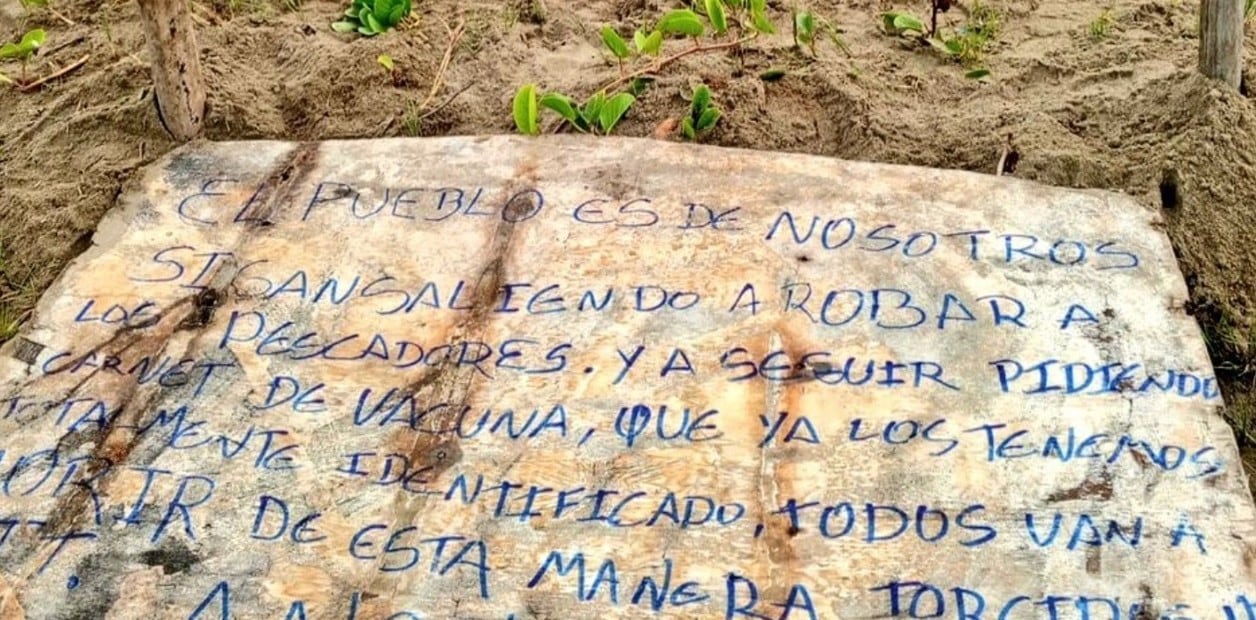 EL PUEBLO ES DE NOSOTROS
SIGAN SALIENDO A ROBAR A
LOS PESCADORES. Y A SEGUIR PIDIENDO
CARNET DE VACUNA, QUE YA LOS TENEMOS
TOTALMENTE IDENTIFICADO, TODOS VAN A
MORIR DE ESTA MANERA